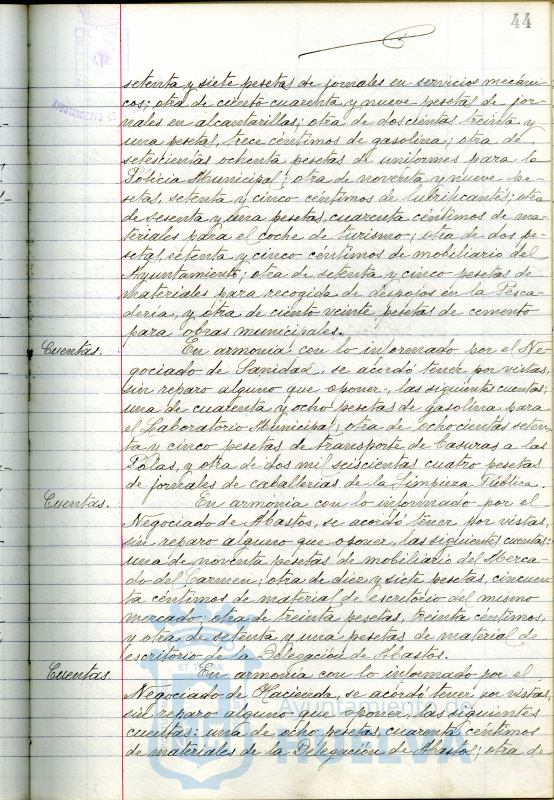 44
AYUNTAMIENTO
setenta y siete pesetas de jornales en servicios mecáni-
cos; otra de ciento cuarenta y nueve pesetas de jor-
nales en alcantarillas; otra de doscientas treinta y
una pesetas, trece céntimos de gasolina; otra de
setescientas ochenta pesetas de uniformes para la
Policia Municipal; otra de noventa y nueve pe-
setas, setenta y cinco céntimos de lubrificantes; otra
de sesenta y una pesetas, cuarenta céntimos de ma-
teriales para el coche de turismo; otra de dos pe-
setas, setenta y cinco céntimos de mobiliario del
Ayuntamiento; otra de setenta y cinco pesetas de
materiales para recogida de despojos en la Pesca-
dería, y otra de ciento veinte pesetas de cemento
para obras municipales.
Cuentas. En armonía con lo informado por el Ne-
gociado de Sanidad, se acordó tener por vistas,
sin reparo alguno que oponer, las siguientes cuentas:
una de cuarenta y ocho pesetas de gasolina para
el Laboratorio Municipal; otra de ochocientas seten-
ta y cinco pesetas de transporte de basuras a las
Polas, y otra de dos mil seiscientas cuatro pesetas
de jornales de caballerías de la Limpieza Pública.
Cuentas. En armonía con lo informado por el
Negociado de Abastos, se acordó tener por vistas,
sin reparo alguno que oponer, las siguientes cuentas:
una de noventa pesetas de mobiliario del Merca-
do del Carmen; otra de diez y siete pesetas, cincuen-
ta céntimos de material de escritorio del mismo
mercado; otra de treinta pesetas, treinta céntimos,
y otra de setenta y una pesetas de material de
escritorio de la Delegación de Abastos.
Cuentas. En armonía con lo informado por el
Negociado de Hacienda, se acordó tener por vistas,
sin reparo alguno que oponer, las siguientes
cuentas: una de ocho pesetas, cuarenta céntimos
de materiales de la Delegación de Abastos; otra de
Ayuntamiento de
HUELVA